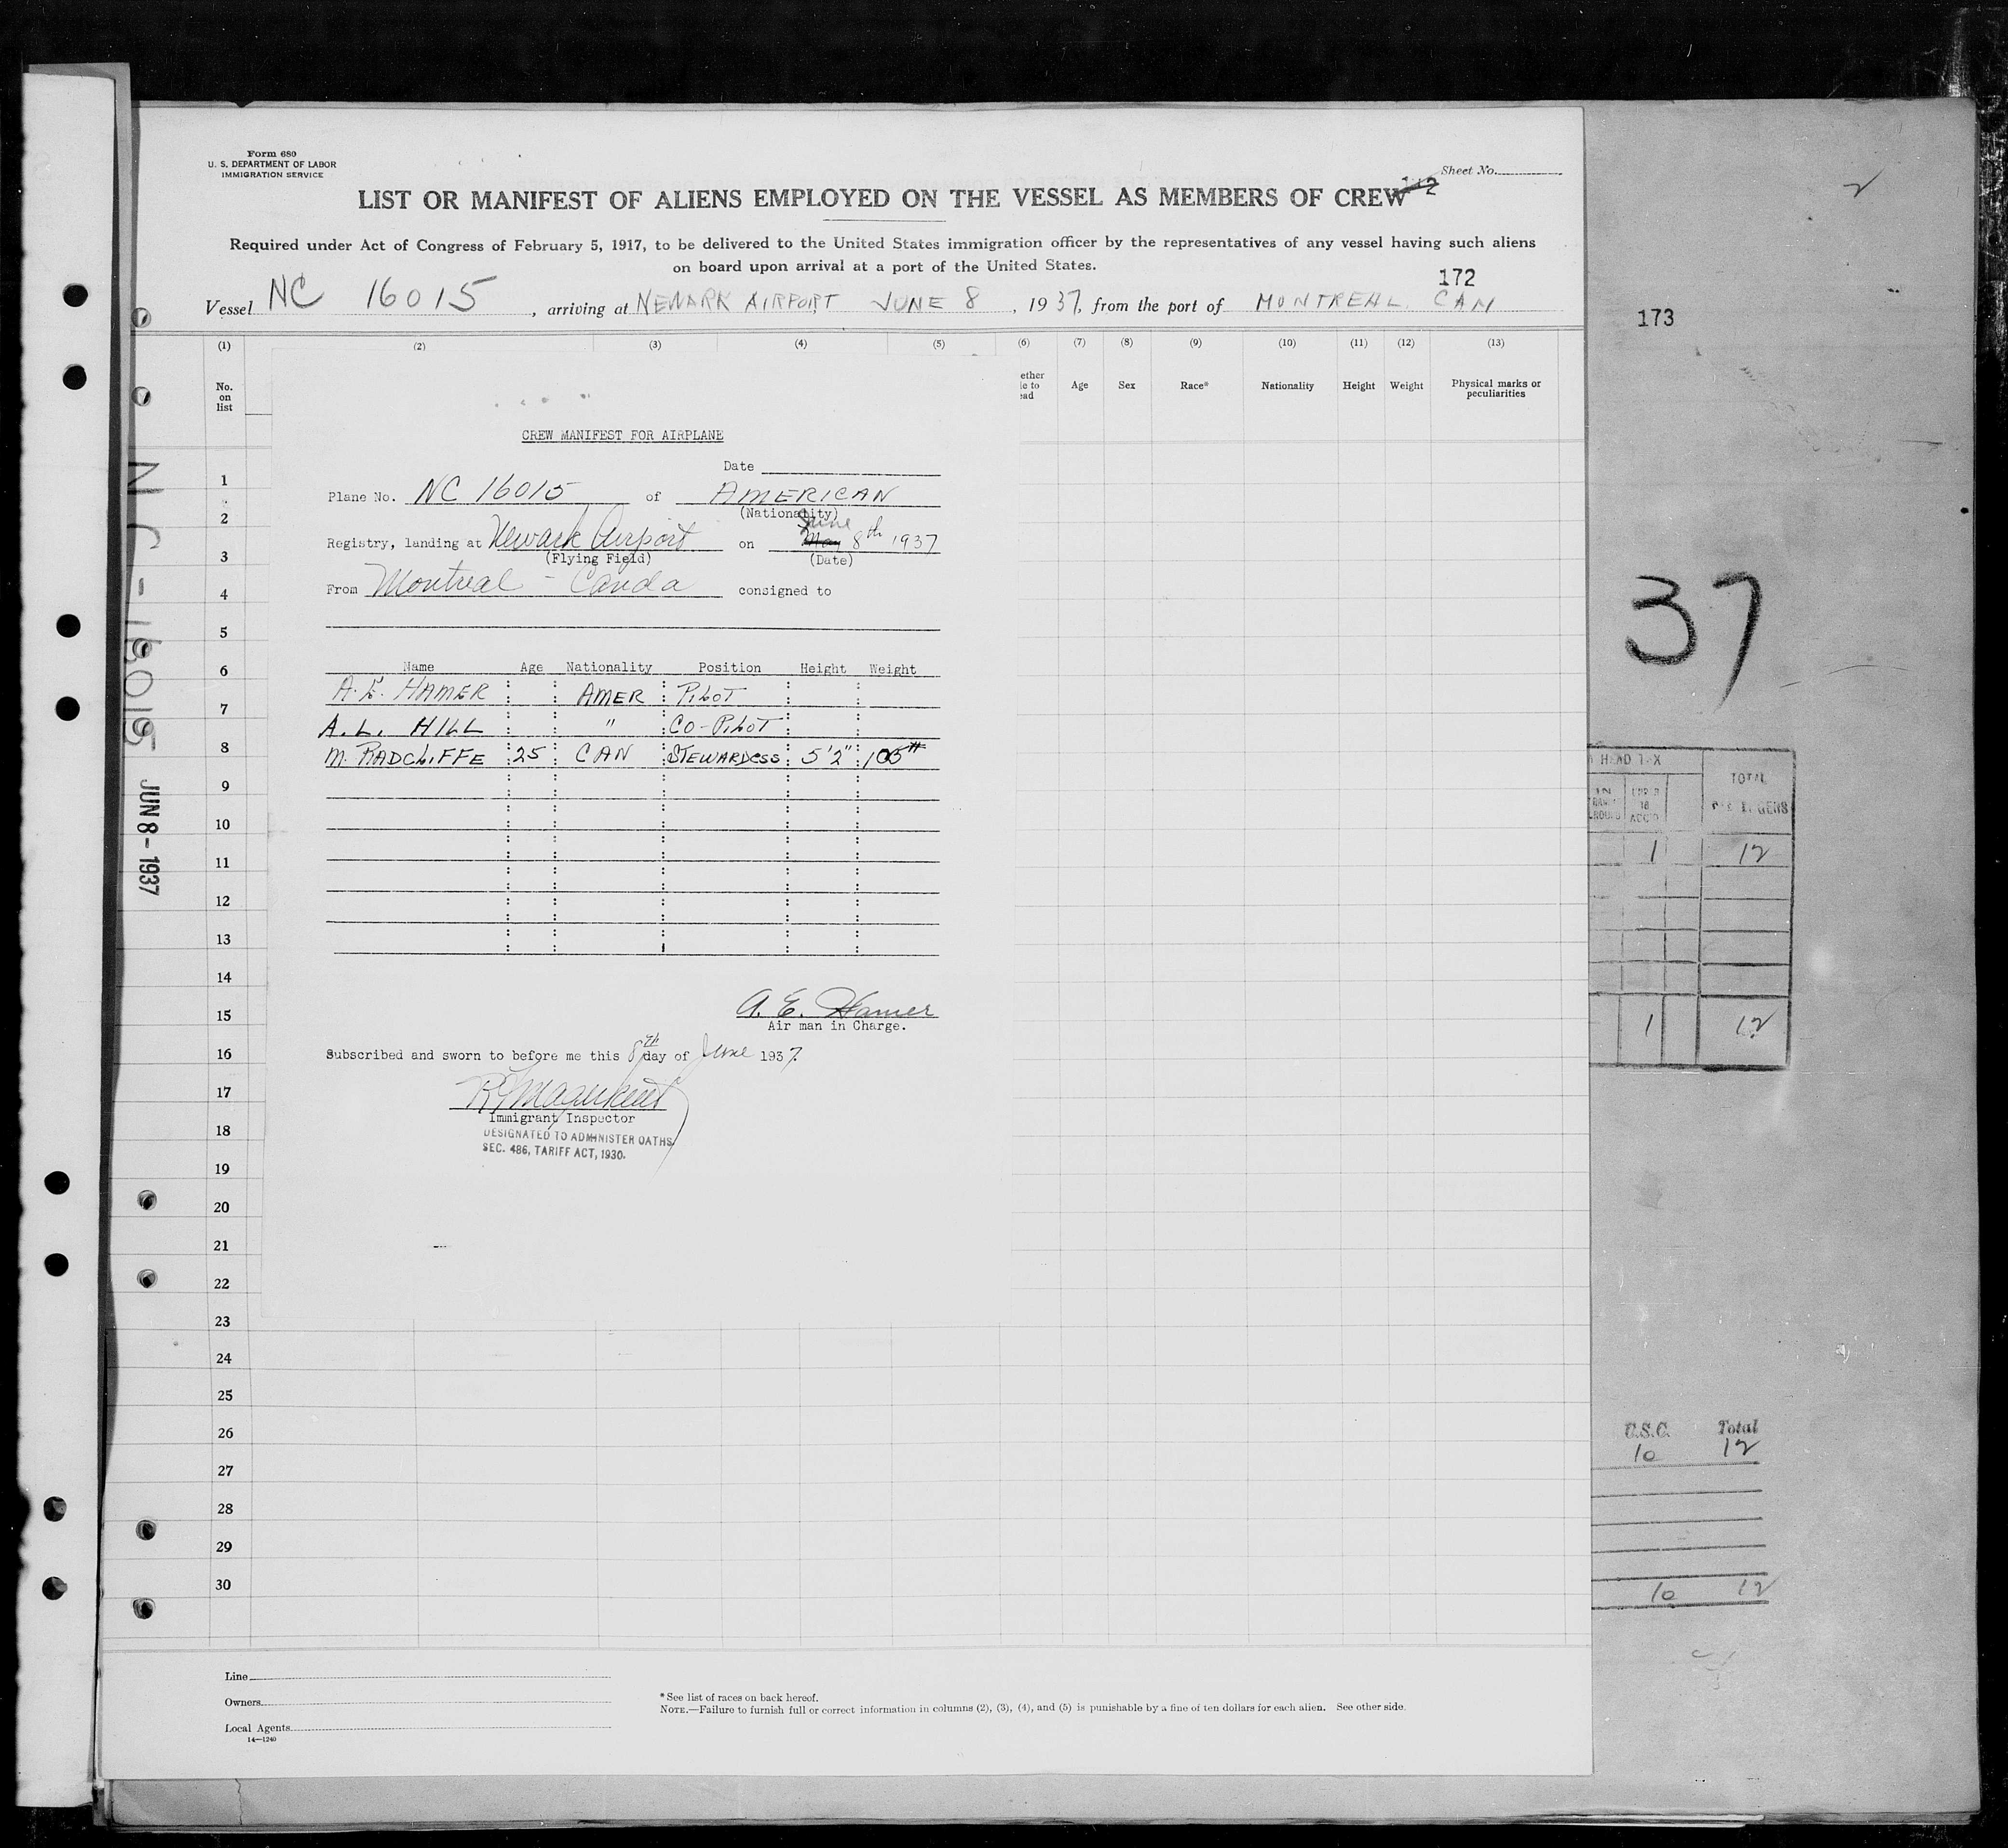 Form 680
U. S. DEPARTMENT OF LABOR
IMMIGRATION SERVICE
Sheet No.
LIST OR MANIFEST OF ALIENS EMPLOYED ON THE VESSEL AS MEMBERS OF CREW
Required under Act of Congress of February 5, 1917, to be delivered to the United States immigration officer by the representatives of any vessel having such aliens
on board upon arrival at a port of the United States.
172
Vessel NC 16015, arriving at NEWARK AIRPORT JUNE 8, 1937, from the port of MONTREAL CAN
173
(1) (2) (3) (4) (5) (6) (7) (8) (9) (10) (11) (12) (13)
No. on list
ether
le to
ead
Age Sex Race* Nationality Height Weight Physical marks or peculiarities
CREW MANIFEST FOR AIRPLANE
Date
Plane No. NC 16015 of AMERICAN
(Nationality)
June
Registry, landing at Newark Airport on May 8th 1937
(Flying Field) (Date)
From Montreal - Canda consigned to
Name Age Nationality Position Height Weight
A. E. HAMER AMER PILOT
A. L. HILL " CO-PILOT
M. RADCLIFFE 25 CAN STEWARDESS 5'2" 105#
A. E. Hamer
Air man in Charge.
Subscribed and sworn to before me this 8th day of June 1937.
Immigrant Inspector
DESIGNATED TO ADMINISTER OATHS
SEC. 486, TARIFF ACT, 1930.
1
2
3
4
5
6
7
8
9
10
11
12
13
14
15
16
17
18
19
20
21
22
23
24
25
26
27
28
29
30
Line
Owners
Local Agents
14—1240
*See list of races on back hereof.
NOTE.—Failure to furnish full or correct information in columns (2), (3), (4), and (5) is punishable by a fine of ten dollars for each alien. See other side.
NC-16015
JUN 8- 1937
2
37
HEAD TAX
TOTAL
1 12
1 12
U.S.C. Total
10 12
10 12